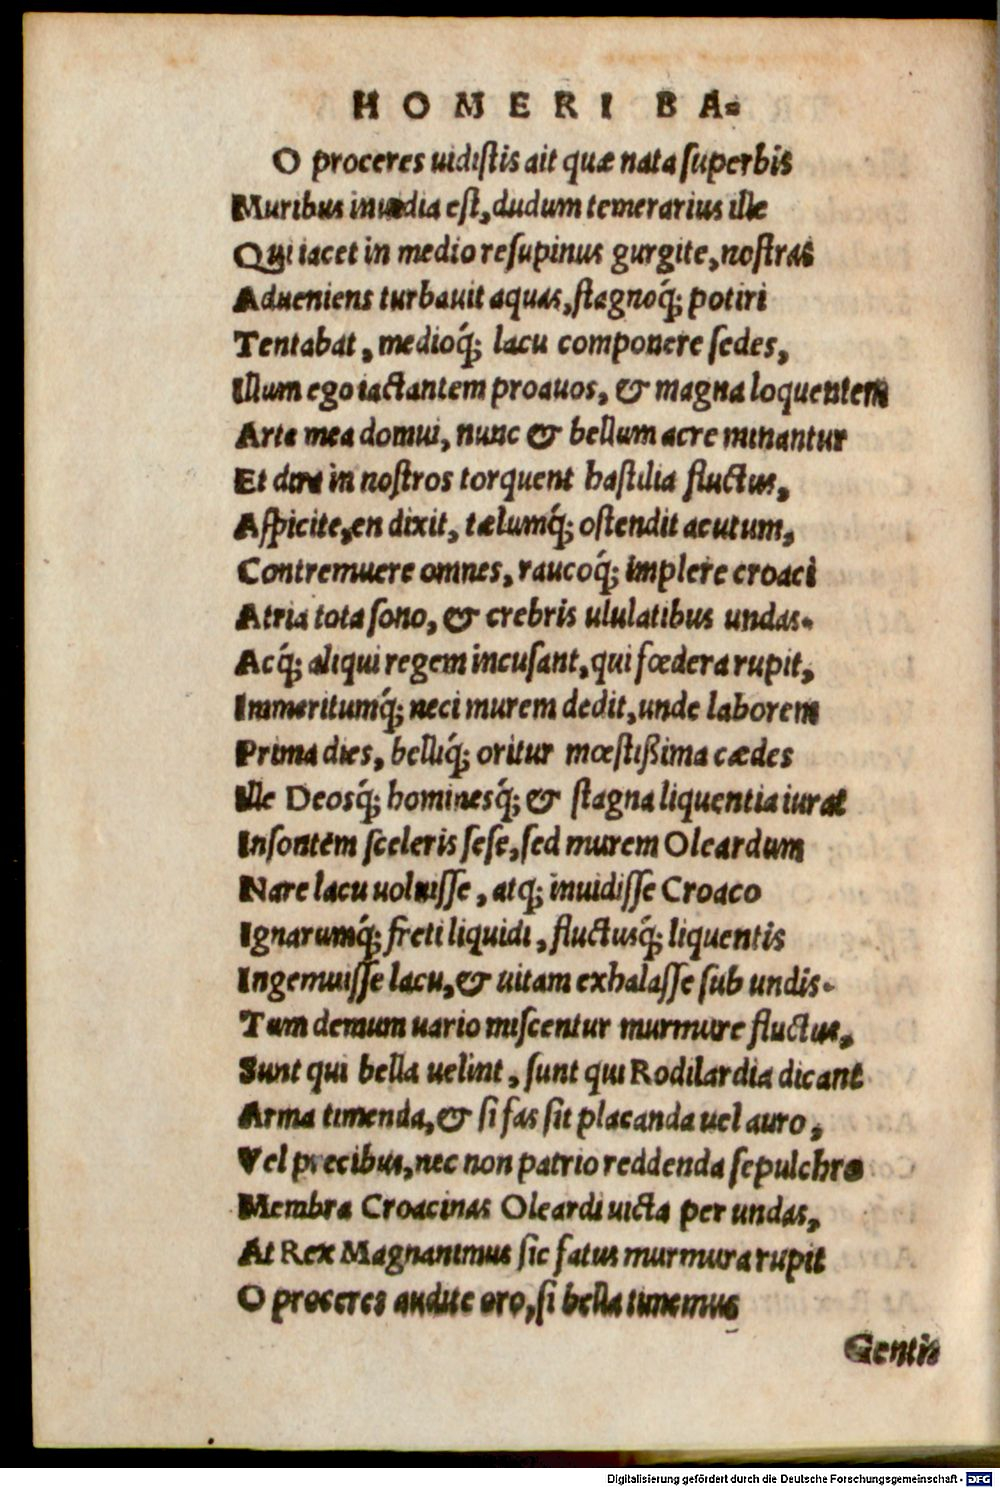 HOMERI BA-
O proceres uidistis ait quæ nata superbis
Muribus inuidia est, dudum temerarius ille
Qui iacet in medio resupinus gurgite, nostras
Adueniens turbauit aquas, stagnoq́; potiri
Tentabat, medioq́; lacu componere sedes,
Illum ego iactantem proauos, & magna loquentem
Arte mea domui, nunc & bellum acre minantur
Et dira in nostros torquent hastilia fluctus,
Aspicite, en dixit, tælumq́; ostendit acutum,
Contremuere omnes, raucoq́; implere croaci
Atria tota sono, & crebris ululatibus undas.
Acq́; aliqui regem incusant, qui fœdera rupit,
Immeritumq́; neci murem dedit, unde laborem
Prima dies, belliq́; oritur mœstißima cædes
Ille Deosq́; hominesq́; & stagna liquentia iurat
Insontem sceleris sese, sed murem Oleardum
Nare lacu uoluisse, atq; inuidisse Croaco
Ignarumq́; freti liquidi, fluctusq́; liquentis
Ingemuisse lacu, & uitam exhalasse sub undis.
Tum demum uario miscentur murmure fluctus,
Sunt qui bella uelint, sunt qui Rodilardia dicant
Arma timenda, & si fas sit placanda uel auro,
Vel precibus, nec non patrio reddenda sepulchro
Membra Croacinas Oleardi uicta per undas,
At Rex Magnanimus sic fatus murmura rupit
O proceres audite oro, si bella timemus
Gentis
Digitalisierung gefördert durch die Deutsche Forschungsgemeinschaft - DFG